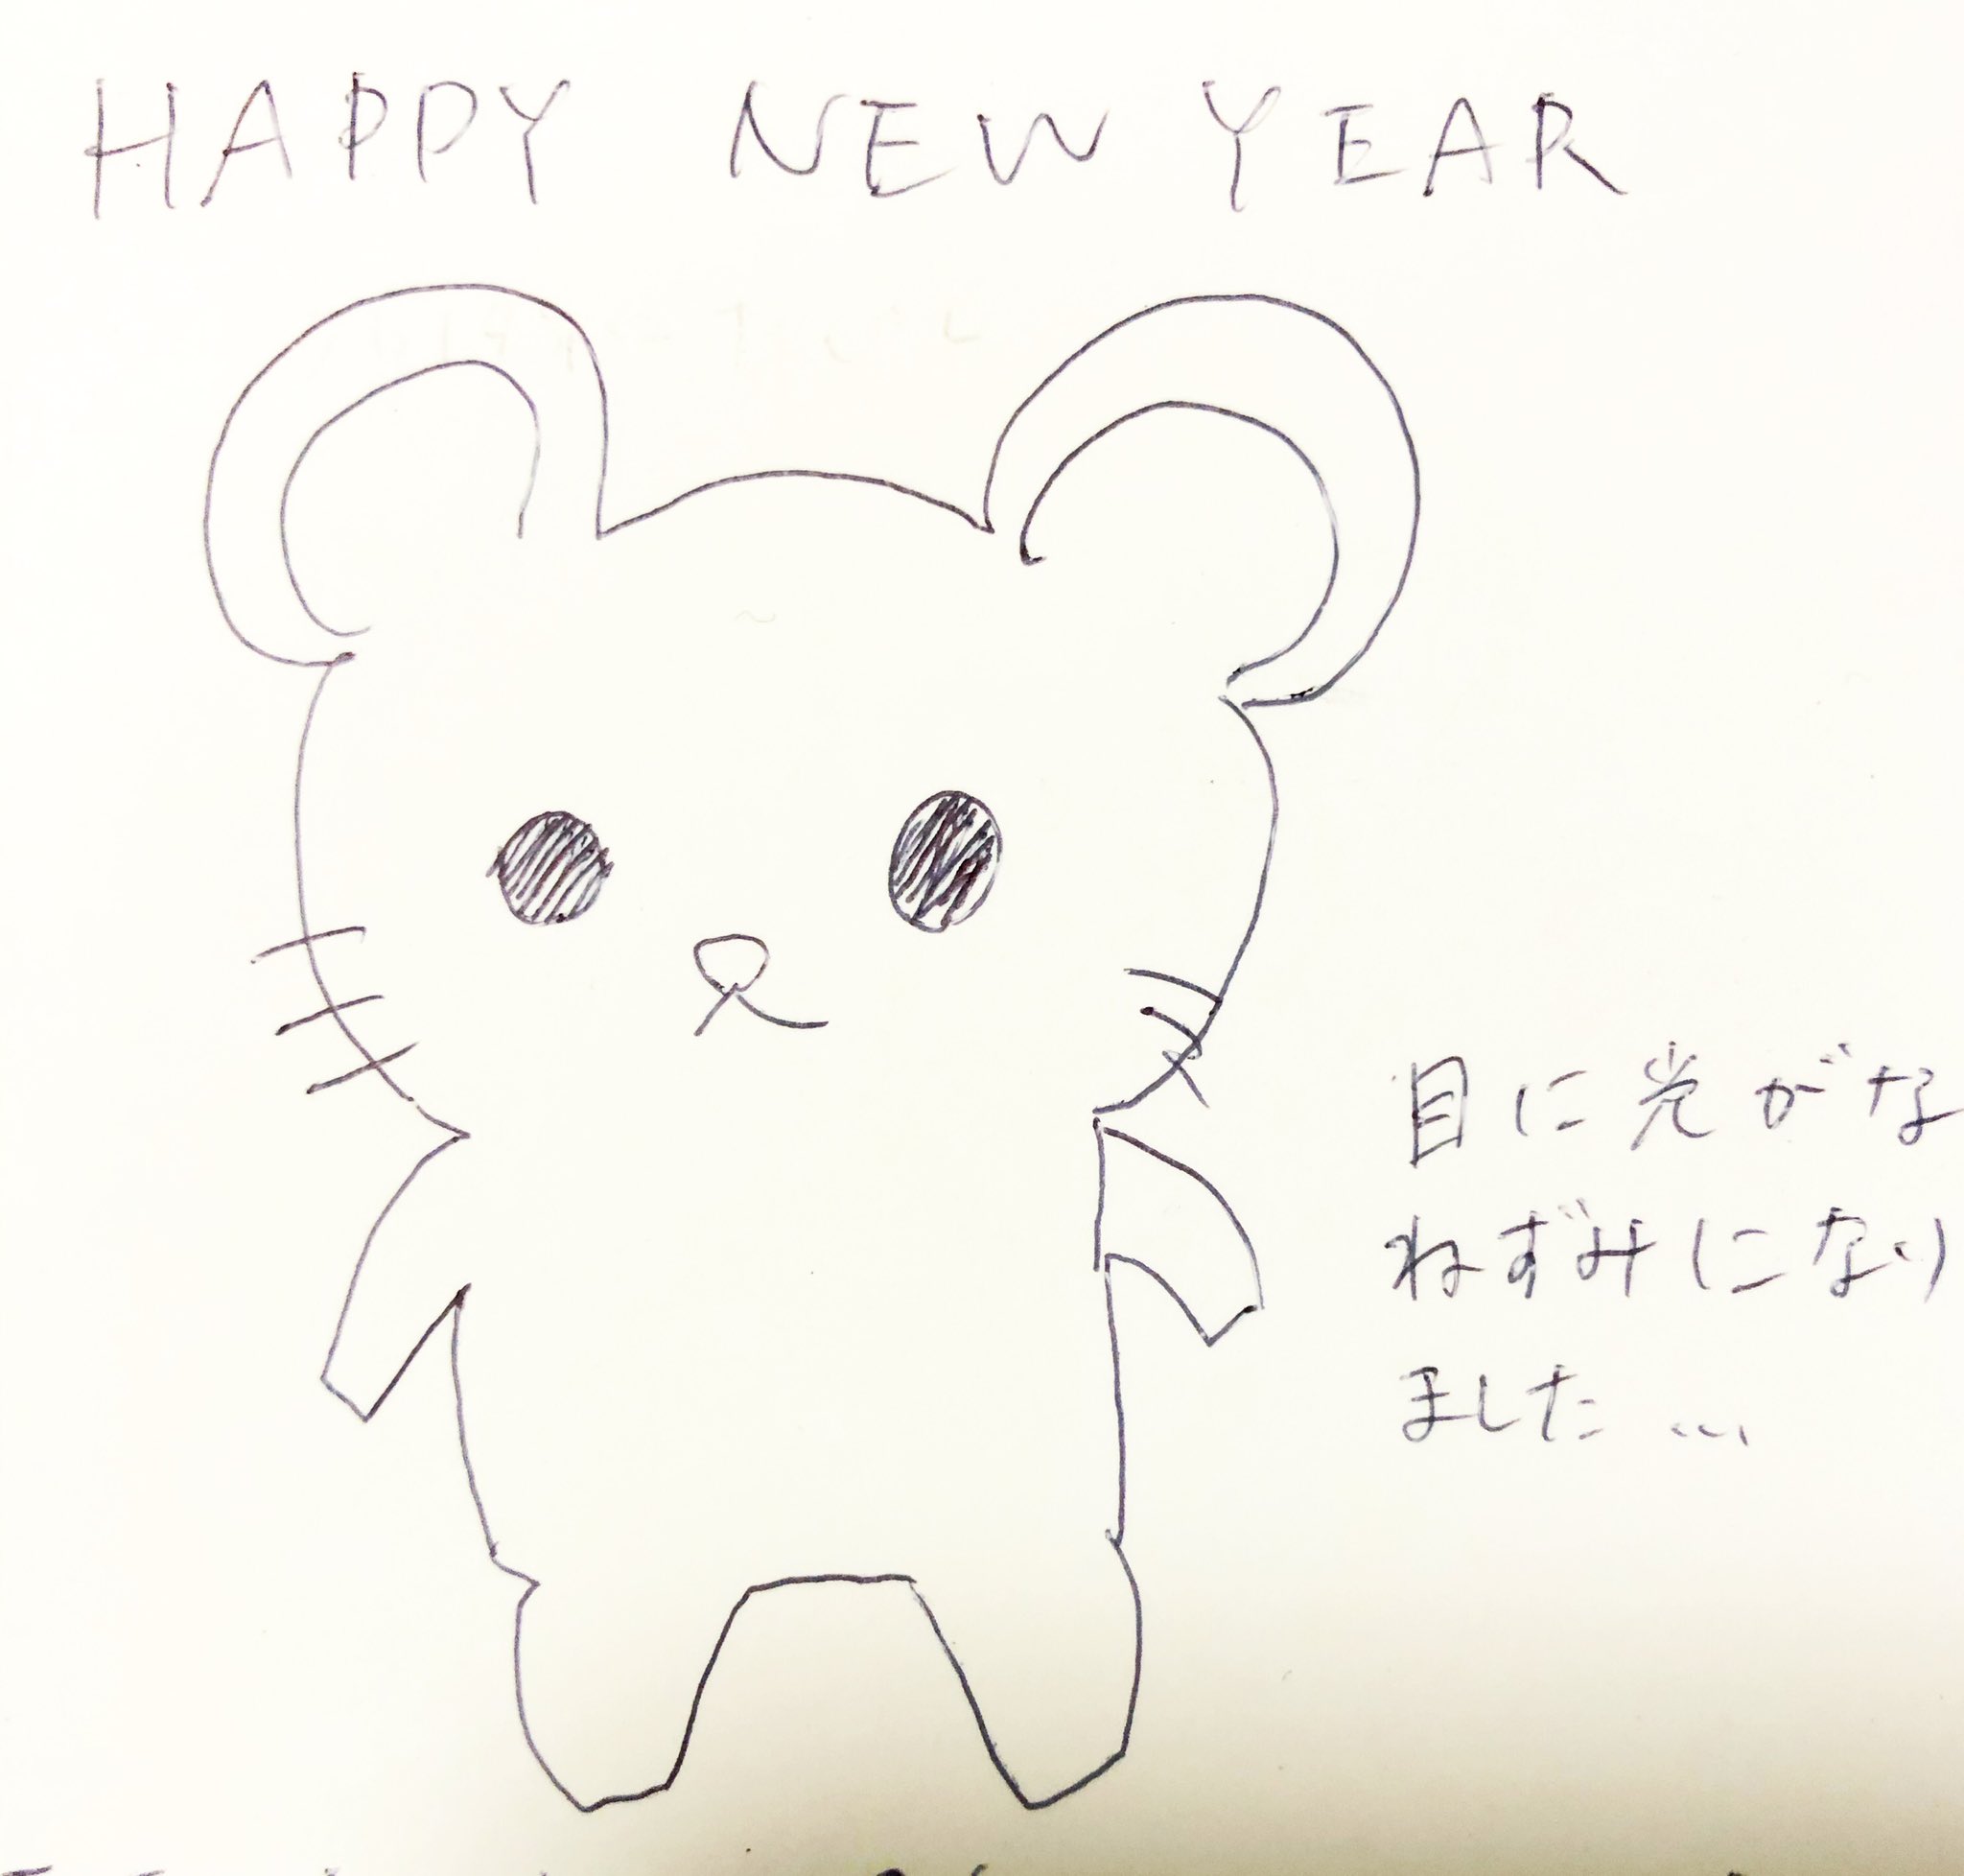 HAPPY NEW YEAR
目に光がな
ねずみになり
ました…